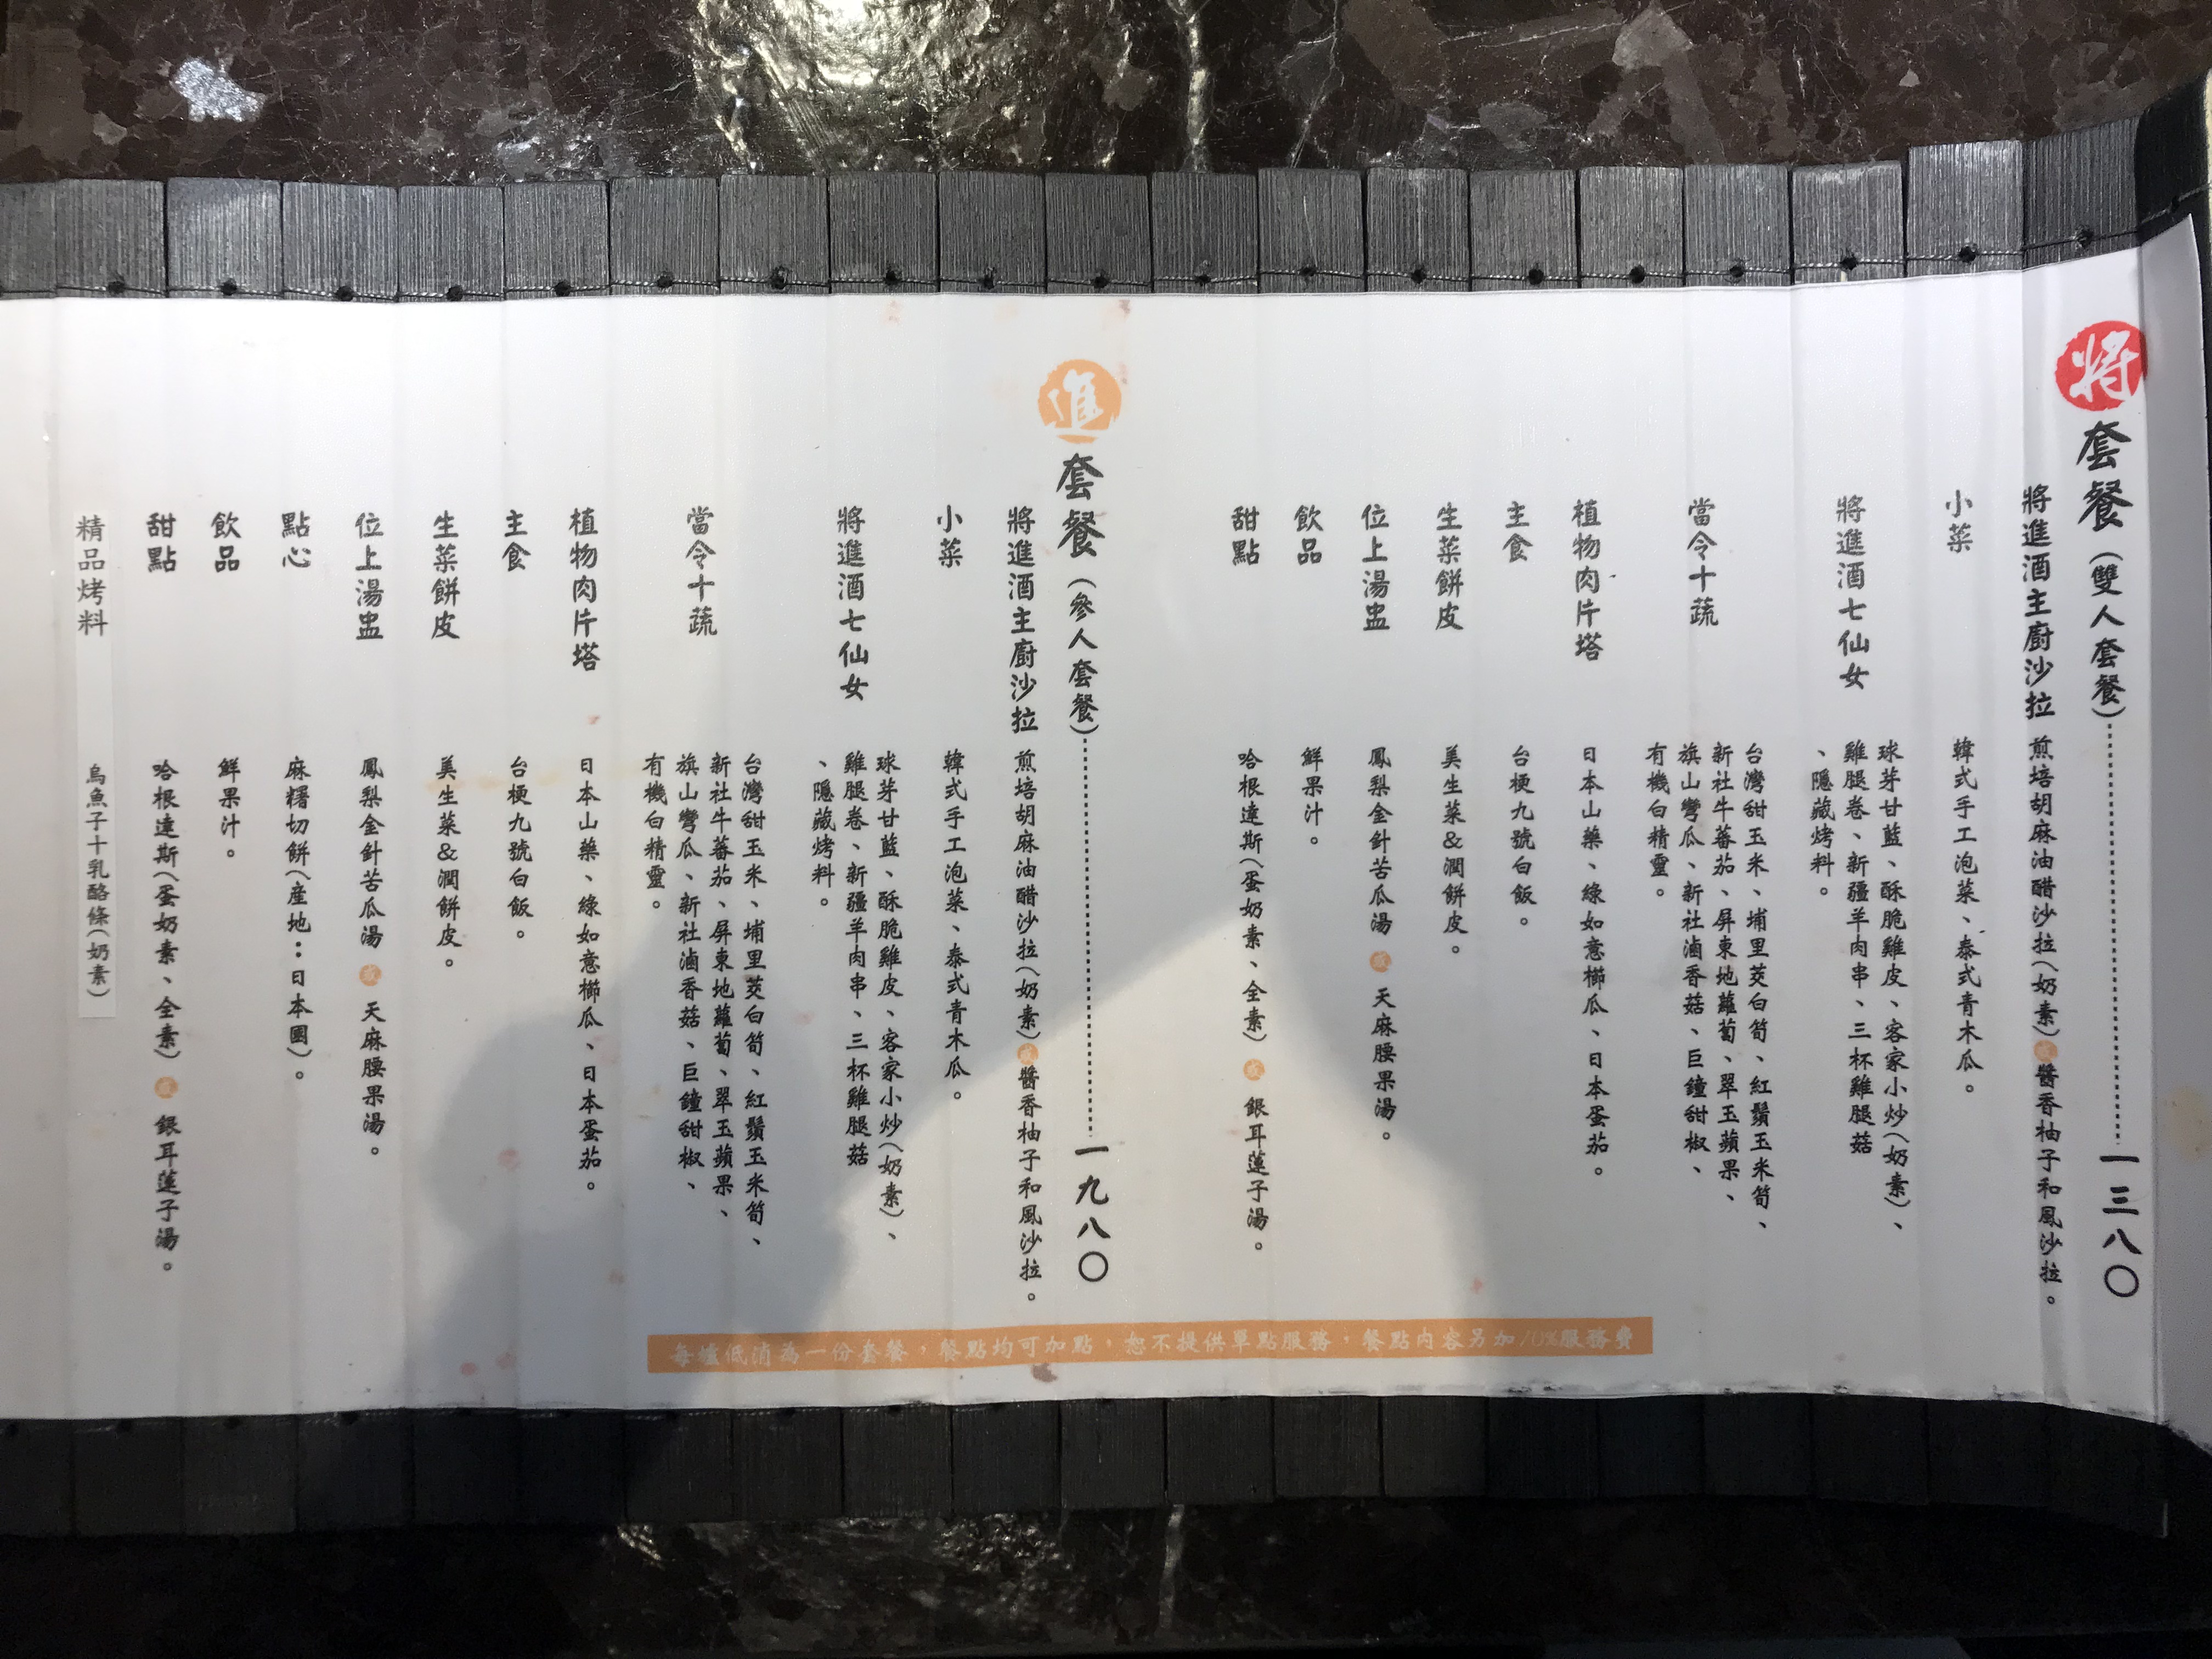 將套餐（雙人套餐）一三八〇
將進酒主廚沙拉 煎焙胡麻油醋沙拉（奶素）或醬香柚子和風沙拉。
小菜 韓式手工泡菜、泰式青木瓜。
將進酒七仙女 球芽甘藍、酥脆雞皮、客家小炒（奶素）、
雞腿卷、新疆羊肉串、三杯雞腿菇
、隱藏烤料。
當令十蔬 台灣甜玉米、埔里茭白筍、紅鬚玉米筍、
新社牛蕃茄、屏東地蘿蔔、翠玉蘋果、
旗山彎瓜、新社滷香菇、巨鐘甜椒、
有機白精靈。
植物肉片塔 日本山藥、綠如意櫛瓜、日本蛋茄。
主食 台梗九號白飯。
生菜餅皮 美生菜&潤餅皮。
位上湯盅 鳳梨金針苦瓜湯 或 天麻腰果湯。
飲品 鮮果汁。
甜點 哈根達斯（蛋奶素、全素）或 銀耳蓮子湯。
進套餐（參人套餐）一九八〇
將進酒主廚沙拉 煎焙胡麻油醋沙拉（奶素）或醬香柚子和風沙拉。
小菜 韓式手工泡菜、泰式青木瓜。
將進酒七仙女 球芽甘藍、酥脆雞皮、客家小炒（奶素）、
雞腿卷、新疆羊肉串、三杯雞腿菇
、隱藏烤料。
當令十蔬 台灣甜玉米、埔里茭白筍、紅鬚玉米筍、
新社牛蕃茄、屏東地蘿蔔、翠玉蘋果、
旗山彎瓜、新社滷香菇、巨鐘甜椒、
有機白精靈。
植物肉片塔 日本山藥、綠如意櫛瓜、日本蛋茄。
主食 台梗九號白飯。
生菜餅皮 美生菜&潤餅皮。
位上湯盅 鳳梨金針苦瓜湯 或 天麻腰果湯。
點心 麻糬切餅（產地：日本國）。
飲品 鮮果汁。
甜點 哈根達斯（蛋奶素、全素）或 銀耳蓮子湯。
精品烤料 烏魚子+乳酪條（奶素）
每爐低消為一份套餐，餐點均可加點，恕不提供單點服務，餐點內容另加10%服務費